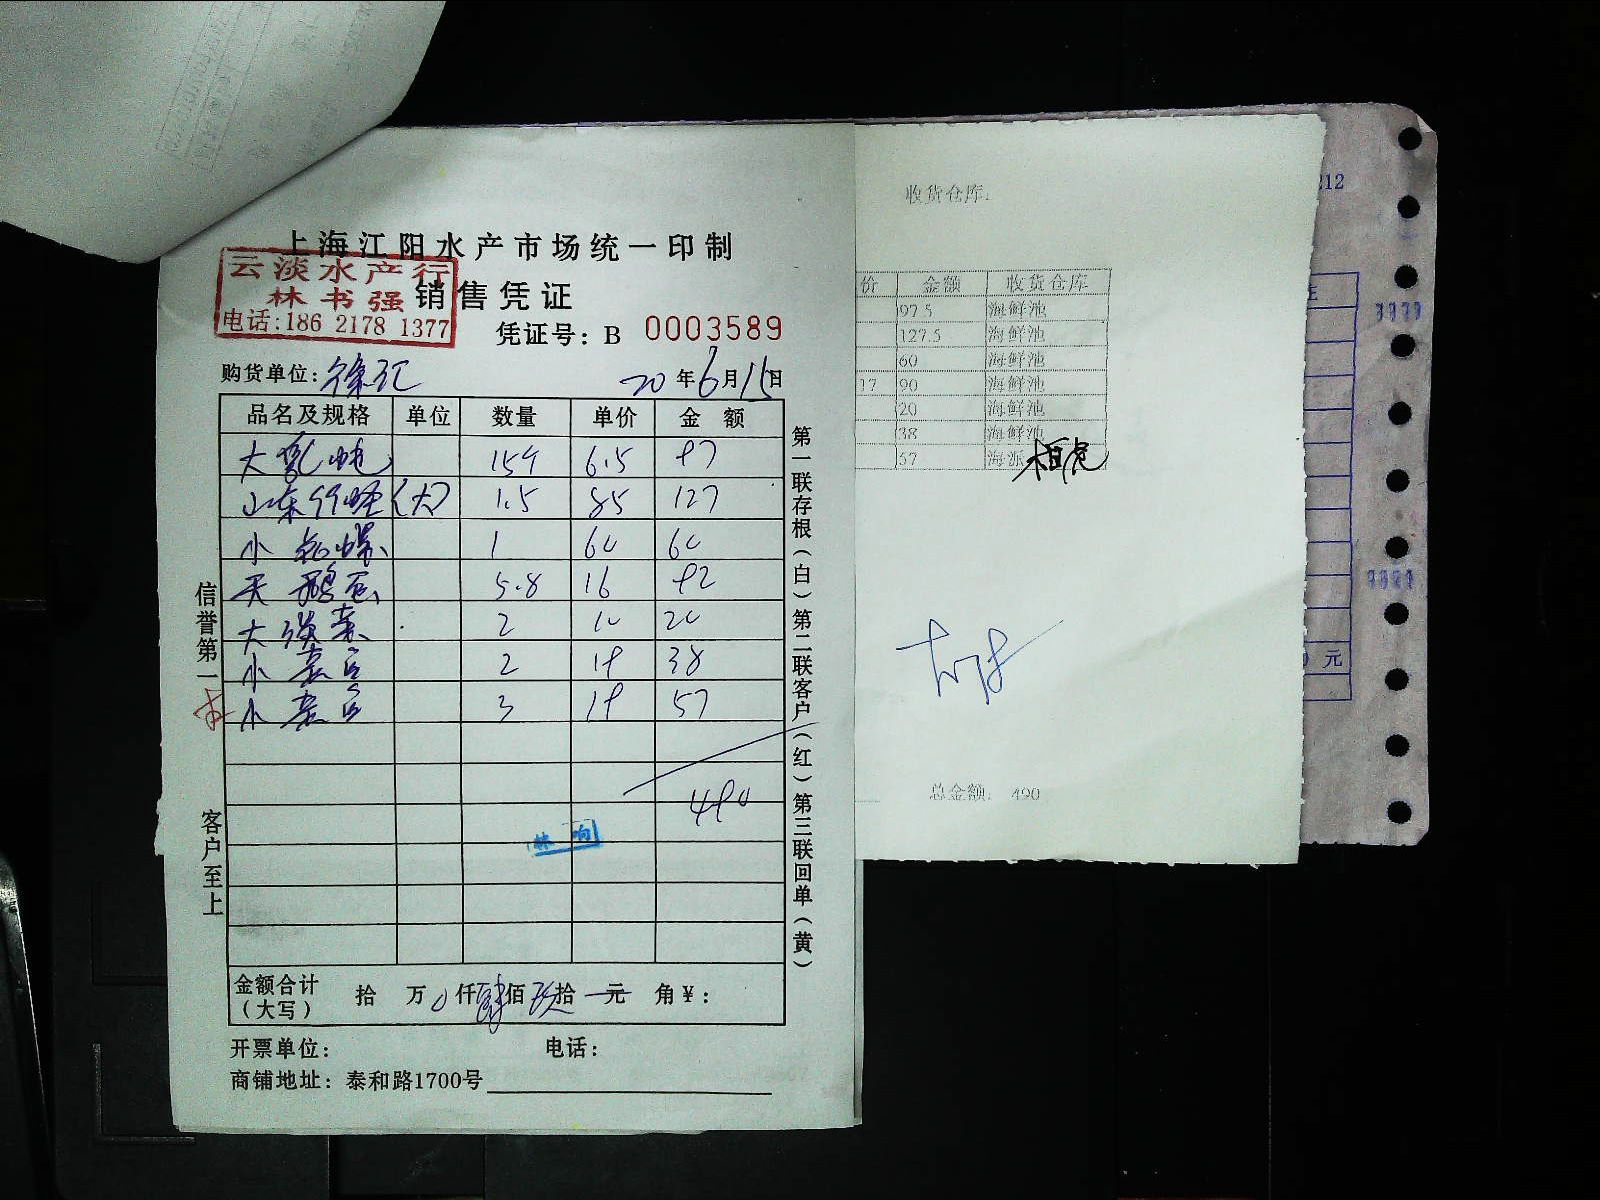 上海江阳水产市场统一印制
云淡水产行
林书强
电话:186 2178 1377
销售凭证
凭证号: B 0003589
购货单位: 徐汇 20年6月15日
品名及规格 单位 数量 单价 金额
大 15 6.5 97
山东 (大) 1.5 85 127
小 1 60 60
天鹅 5.8 16 92
大 2 10 20
小 2 19 38
小 3 19 57
490
林响
金额合计(大写) 拾 万 0仟肆佰玖拾 元 角¥:
开票单位: 电话:
商铺地址: 泰和路1700号
信誉第一
客户至上
第一联存根(白)第二联客户(红)第三联回单(黄)
收货仓库:
价 金额 收货仓库
97.5 海鲜池
127.5 海鲜池
60 海鲜池
17 90 海鲜池
20 海鲜池
38 海鲜池
57 海
总金额: 490
212
元